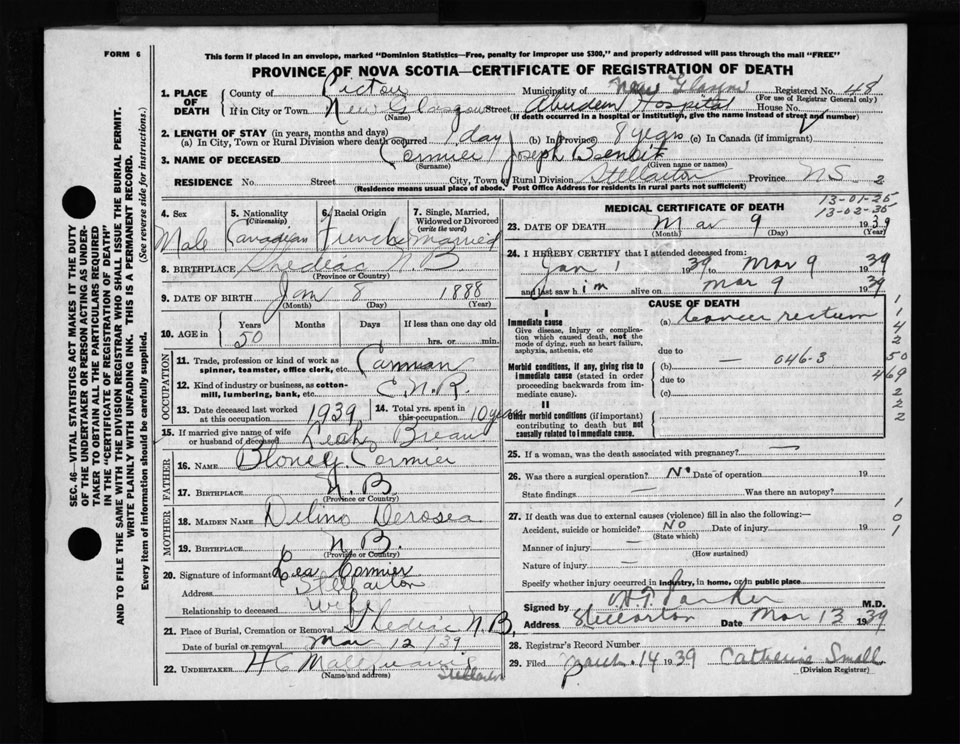 FORM 6
This form if placed in an envelope, marked "Dominion Statistics—Free, penalty for improper use $300," and properly addressed will pass through the mail "FREE"
PROVINCE OF NOVA SCOTIA—CERTIFICATE OF REGISTRATION OF DEATH
1. PLACE OF DEATH
County of Pictou
Municipality of New Glasgow Registered No. 48
(For use of Registrar General only)
If in City or Town New Glasgow Street Aberdeen Hospital House No.
(Name) (If death occurred in a hospital or institution, give the name instead of street and number)
2. LENGTH OF STAY (in years, months and days)
(a) In City, Town or Rural Division where death occurred 1 day (b) in Province 8 years (c) in Canada (if immigrant)
3. NAME OF DECEASED Cormier Joseph Benoit
(Surname) (Given name or names)
RESIDENCE No. Street City, Town or Rural Division Stellarton Province N.S. 2
(Residence means usual place of abode. Post Office Address for residents in rural parts not sufficient)
4. Sex
Male
5. Nationality
(Citizenship)
Canadian
6. Racial Origin
French
7. Single, Married, Widowed or Divorced
(write the word)
Married
8. BIRTHPLACE Shediac N.B.
(Province or Country)
9. DATE OF BIRTH Jan 8 1888
(Month) (Day) (Year)
10. AGE in
Years Months Days If less than one day
50 hrs. or min.
OCCUPATION
11. Trade, profession or kind of work as spinner, teamster, office clerk, etc. Carman
12. Kind of industry or business, as cotton-mill, lumbering, bank, etc. C.N.R.
13. Date deceased last worked at this occupation 1939
14. Total yrs. spent in this occupation 10 years
15. If married give name of wife or husband of deceased Leah Breau
FATHER
16. NAME Cormier
17. BIRTHPLACE N.B.
(Province or Country)
MOTHER
18. MAIDEN NAME
19. BIRTHPLACE N.B.
(Province or Country)
20. Signature of informant Lea Cormier
Address Stellarton
Relationship to deceased wife
21. Place of Burial, Cremation or Removal Shediac N.B.
Date of burial or removal Mar 12/39
22. UNDERTAKER H C
(Name and address)
Stellarton
13-01-25
13-02-35
MEDICAL CERTIFICATE OF DEATH
23. DATE OF DEATH Mar 9 1939
(Month) (Day) (Year)
24. I HEREBY CERTIFY that I attended deceased from:
Jan 1 1939 to Mar 9 1939
and last saw h im alive on Mar 9 1939
CAUSE OF DEATH
I
Immediate cause
Give disease, injury or complication which caused death, not the mode of dying, such as heart failure, asphyxia, asthenia, etc
(a) Cancer rectum
due to
Morbid conditions, if any, giving rise to immediate cause (stated in order proceeding backwards from immediate cause).
(b) — 046-3
due to
(c)
II
Other morbid conditions (if important) contributing to death but not causally related to immediate cause.
1
1
4
2
50
469
2
2
2
25. If a woman, was the death associated with pregnancy? —
26. Was there a surgical operation? No Date of operation 19
State findings — Was there an autopsy?
27. If death was due to external causes (violence) fill in also the following:—
Accident, suicide or homicide? No Date of injury 19
(State which)
Manner of injury —
(How sustained)
Nature of injury —
Specify whether injury occurred in industry, in home, or in public place.
1
0
1
Signed by H.T. Parker M.D.
Address Stellarton Date Mar 13 1939
28. Registrar's Record Number
29. Filed March 14 1939 Catherine Small
(Division Registrar)
SEC. 46—VITAL STATISTICS ACT MAKES IT THE DUTY OF THE UNDERTAKER OR PERSON ACTING AS UNDERTAKER TO OBTAIN ALL THE PARTICULARS REQUIRED IN THE "CERTIFICATE OF DEATH" AND TO FILE THE SAME WITH THE DIVISION REGISTRAR WHO SHALL ISSUE THE BURIAL PERMIT.
WRITE PLAINLY WITH UNFADING INK. THIS IS A PERMANENT RECORD.
Every item of information should be carefully supplied. (See reverse side for instructions.)